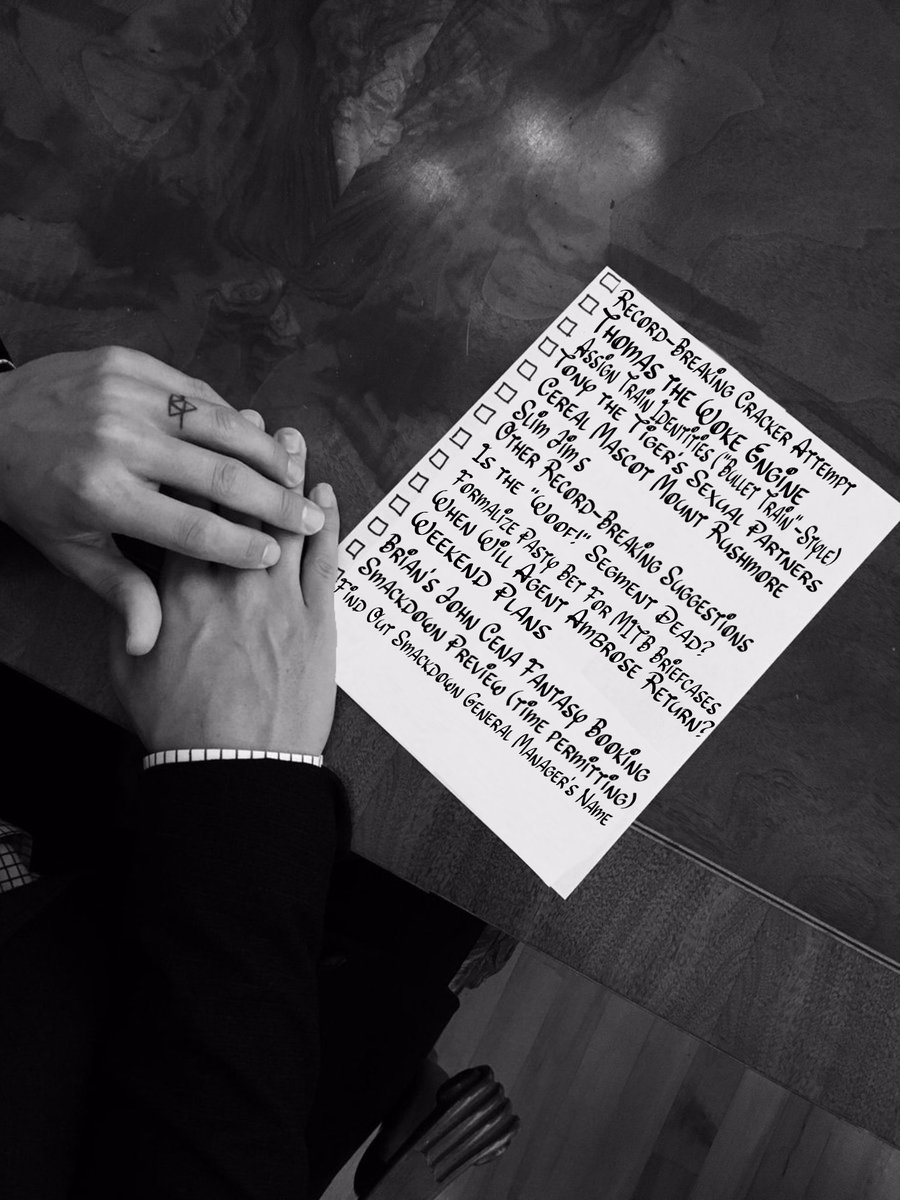 Record-Breaking Cracker Attempt
Thomas the Woke Engine
Assign Train Identities ("Bullet Train"-Style)
Tony the Tiger's Sexual Partners
Cereal Mascot Mount Rushmore
Slim Jims
Other Record-Breaking Suggestions
Is the "Woof!" Segment Dead?
Formalize Pasty Bet For MITB Briefcases
When Will Agent Ambrose Return?
Weekend Plans
Brian's John Cena Fantasy Booking
Smackdown Preview (time permitting)
Find Out Smackdown General Manager's Name